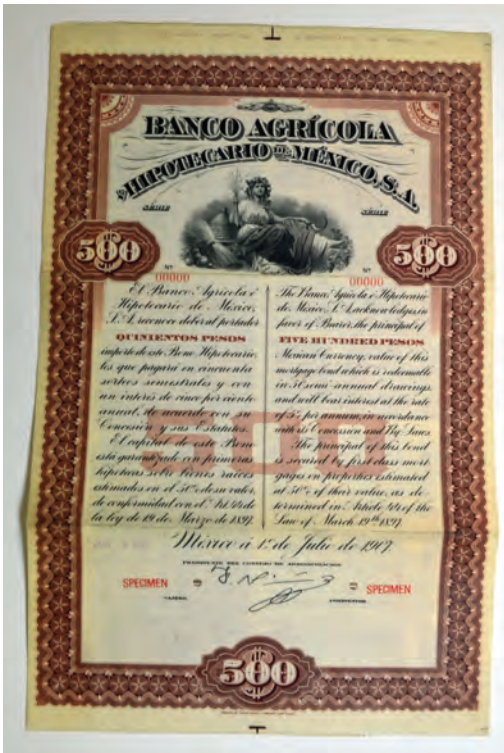 BANCO AGRÍCOLA
É HIPOTECARIO DE MÉXICO, S.A.
SÉRIE
SÉRIE
500
500
Nº
Nº
00000
00000
El Banco Agrícola é
Hipotecario de México,
S. A. reconoce deber al portador
QUINIENTOS PESOS
importe de este Bono Hipotecario,
los que pagará en cincuenta
sorteos semestrales y con
un interés de cinco por ciento
anual, de acuerdo con su
Concesión y sus Estatutos.
El capital de este Bono
está garantizado con primeras
hipotecas sobre bienes raíces
estimados en el 50% de su valor,
de conformidad con el
la ley de 19 de Marzo de 1897.
The Banco Agrícola é Hipotecario
de México, S. A. acknowledges in
favor of Bearer, the principal of
FIVE HUNDRED PESOS
Mexican Currency, value of this
mortgage bond which is redeemable
in 50 semi-annual drawings
and will bear interest at the rate
of 5% per annum, in accordance
with its Concession and By-Laws
The principal of this bond
is secured by first class mort
gages on properties estimated
at 50% of their value, as de
termined in Article of the
Law of March 19th 1897.
México á 1º de Julio de 1907.
PRESIDENTE DEL CONSEJO DE ADMINISTRACION
SPECIMEN
SPECIMEN
CAJERO.
500